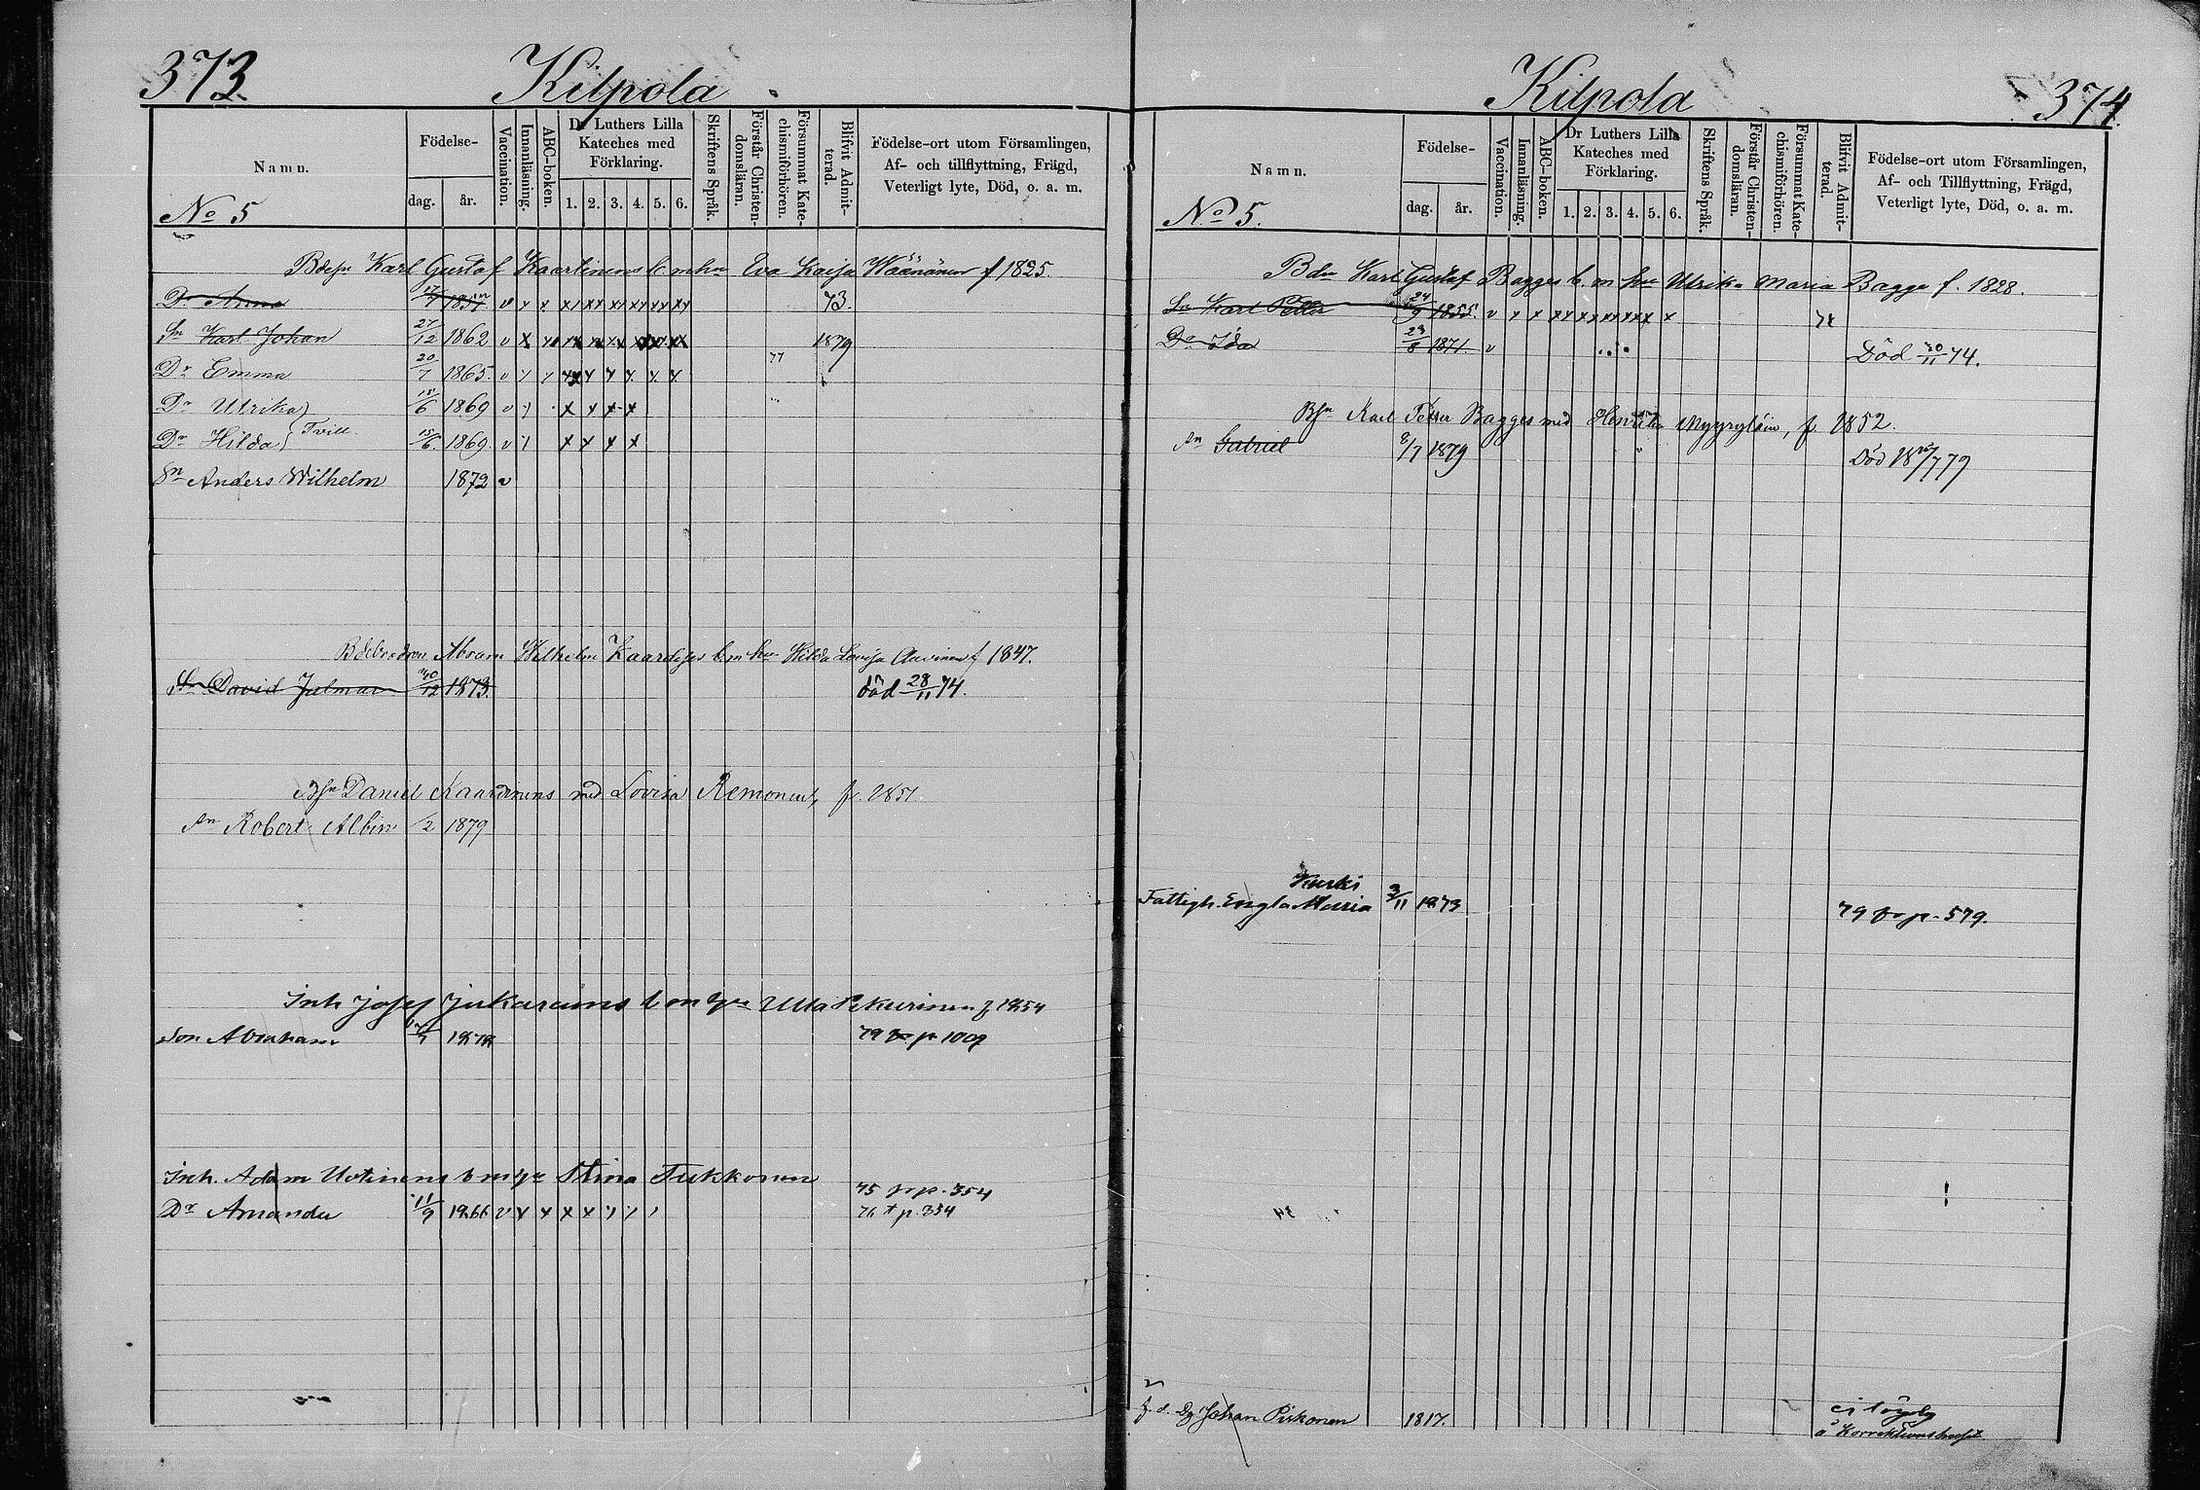 373
Kilpola
Namn.
Födelse-
dag.
år.
Vaccination.
Innanläsning.
ABC-boken.
Dr Luthers Lilla
Kateches med
Förklaring.
1. 2. 3. 4. 5. 6.
Skriftens Språk.
Förstår Christen-
domsläran.
Försummat Kate-
chismiförhören.
Blifvit Admit-
terad.
Födelse-ort utom Församlingen,
Af- och tillflyttning, Frägd,
Veterligt lyte, Död, o. a. m.
No 5
Karl Gustaf Kaartinens b m hu Eva Kaisa Wäänänen f 1825.
Dr Anna 1857 v 73.
Sn Karl Johan 27/12 1862 v 1879
Dr Emma 20/7 1865. v 77
Dr Ulrika 15/6 1869 v
Tvill.
Dr Hilda 15/6. 1869. v
Sn Anders Wilhelm 1872 v
Abram Wilhelm b m hu Hilda Lovisa Auvinen f 1847.
Sn David Jalmar 30/12 1873. död 28/11 74.
Daniel Kaartinens med Lovisa Remonen, f. 1851.
Sn Robert Albin /2 1879
Inh Josef b m Ulla Pekurinen f 1854
Son Abraham 79 p 1009
Inh. Adam Uotinens b m Stina Tukkonen
75 p. 354
Dr Amanda 11/9 1866 v 76 p. 334
374.
Kilpola
Namn.
Födelse-
dag.
år.
Vaccination.
Innanläsning.
ABC-boken.
Dr Luthers Lilla
Kateches med
Förklaring.
1. 2. 3. 4. 5. 6.
Skriftens Språk.
Förstår Christen-
domsläran.
Försummat Kate-
chismiförhören.
Blifvit Admit-
terad.
Födelse-ort utom Församlingen,
Af- och Tillflyttning, Frägd,
Veterligt lyte, Död, o. a. m.
No 5.
Karl Gustaf Bagges b. m hu Ulrika Maria Bagge f. 1828.
Sn Karl Petter 24/9 1855. v
Dr Ida 23/8 1871. v Död 30/11 74.
Karl Petter Bagges med f 1852.
Sn Gabriel 8/7 1879 Död
Kurki
Fattigh. Engla Maria 3/11 1873 79 p. 579.
Johan Pirkonen 1817.
å Korrektionshuset